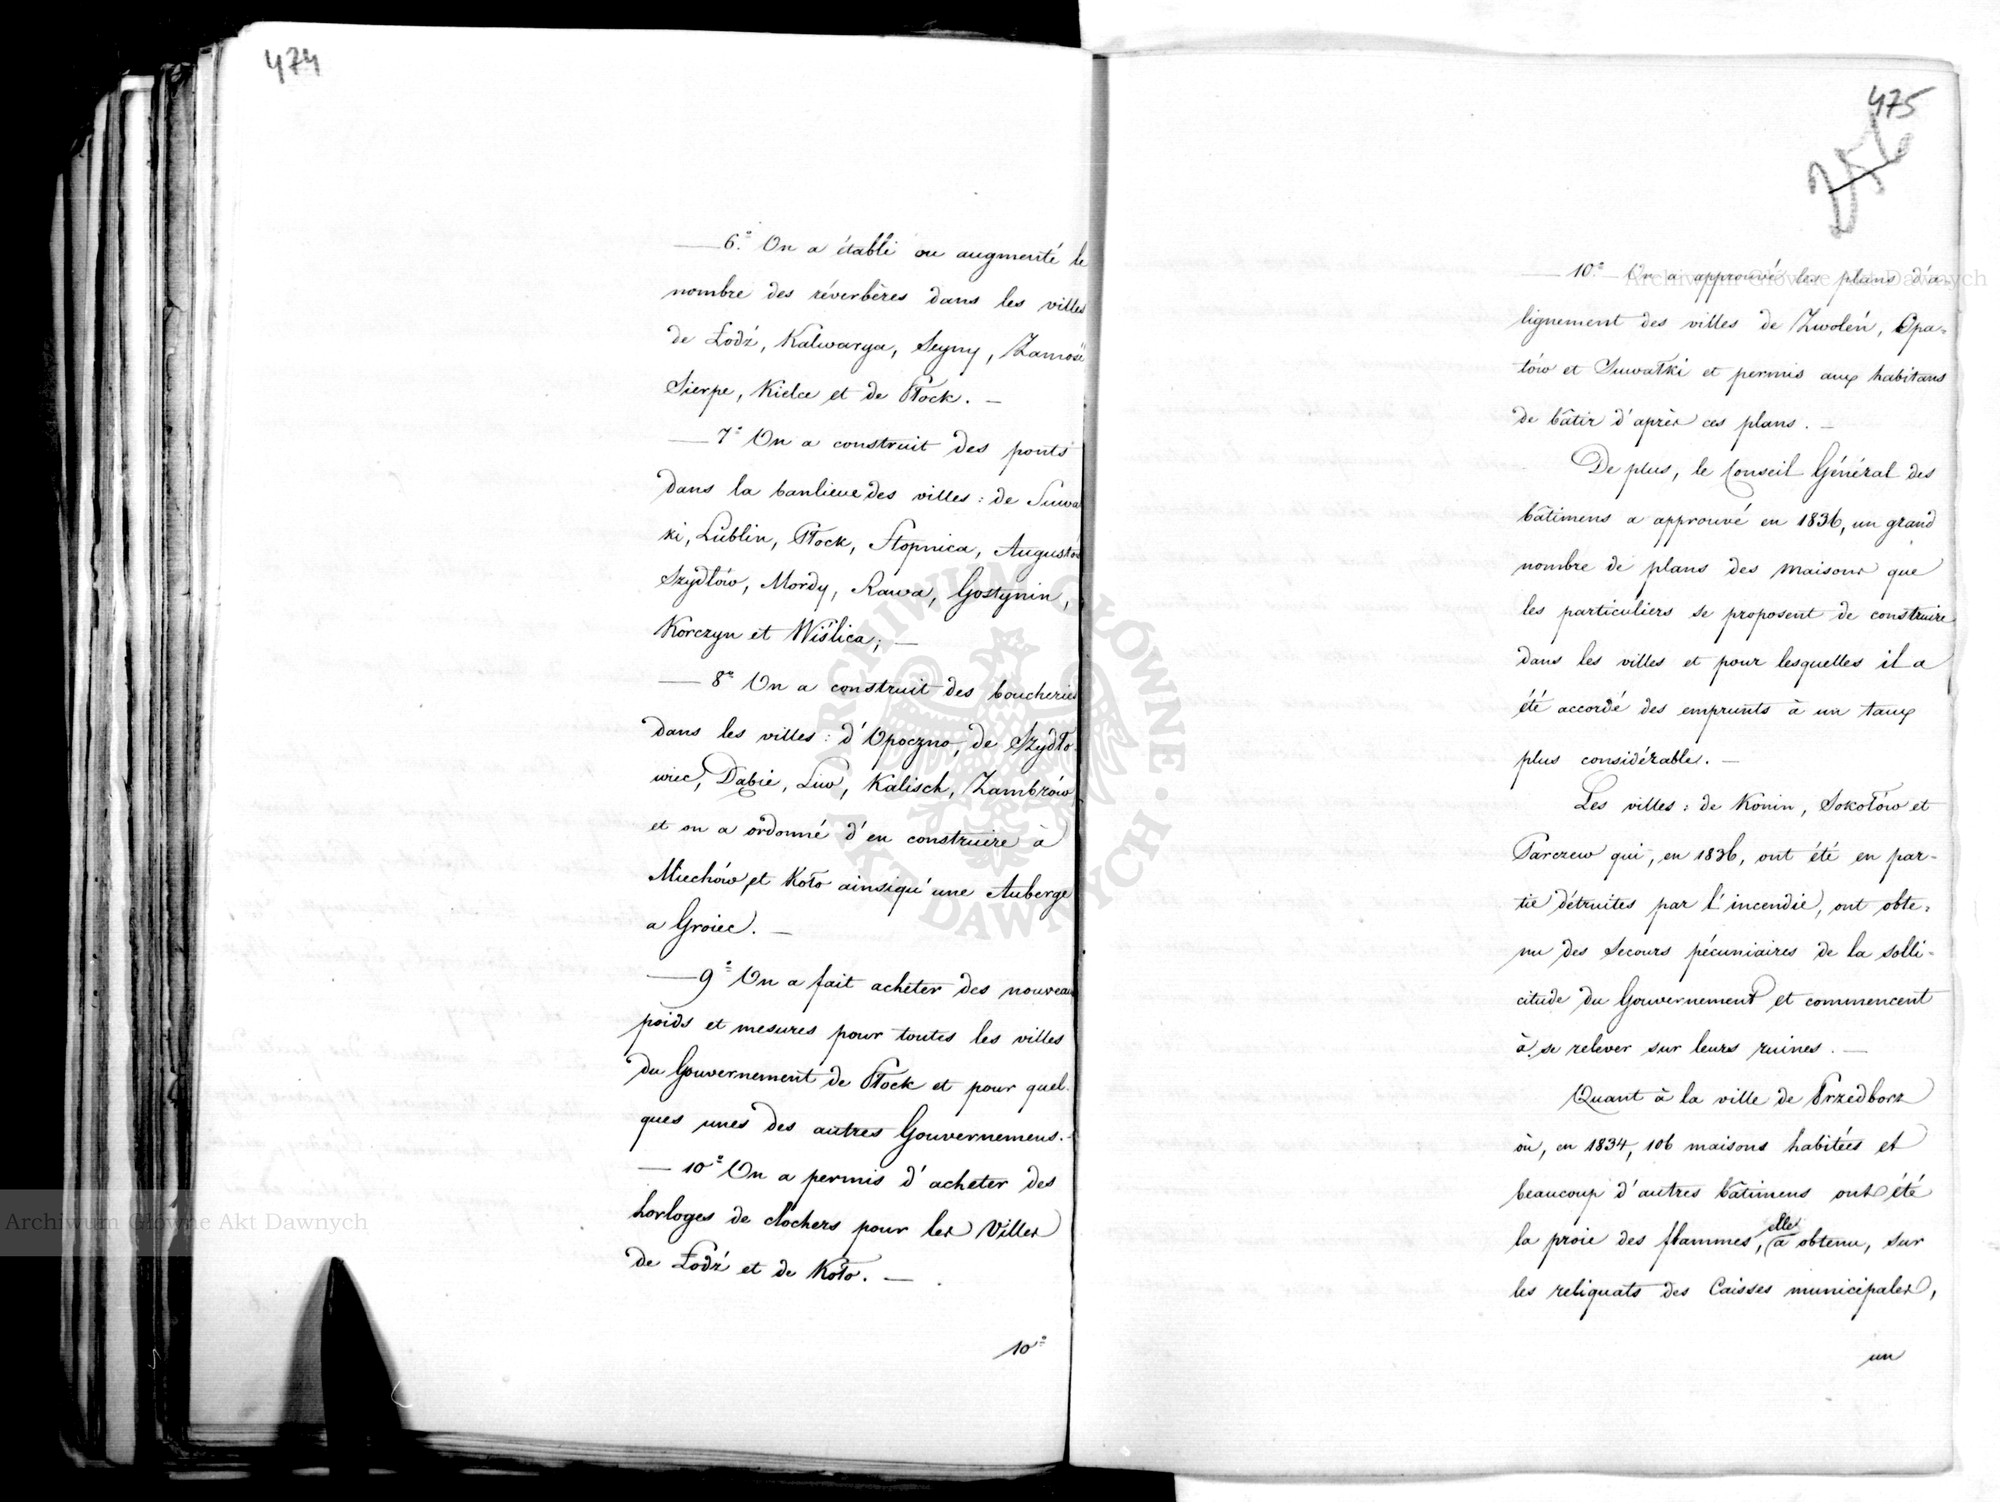 474
— 6.° On a établi ou augmenté le
nombre des réverbères dans les villes
de Łodź, Kalwarya, Seyny, Zamość
Sierpe, Kielce et de Płock. —
— 7° On a construit des ponts
dans la banlieue des villes : de Suwa
ki, Lublin, Płock, Stopnica, Augustów
Szydłów, Mordy, Rawa, Gostynin,
Korczyn et Wiślica; —
— 8° On a construit des boucheries
dans les villes : d'Opoczno, de Szydło-
wiec, Dąbie, Liw, Kalisch, Zambrów
et on a ordonné d'en construire à
Miechów, et Koło ainsiqu'une Auberge
a Groiec. —
— 9° On a fait acheter des nouveau
poids et mesures pour toutes les villes
du Gouvernement de Płock et pour quel-
ques unes des autres Gouvernemens. -
— 10° On a permis d'acheter des
horloges de clochers pour les Villes
de Łodź et de Koło. —
10°
475
— 10° — On a approuvé les plans d'a-
lignement des villes de Zwoleń, Opa-
tów et Suwałki et permis aux habitans
de bâtir d'après ces plans. —
De plus, le Conseil Général des
bâtimens a approuvé en 1836, un grand
nombre de plans des maisons que
les particuliers se proposent de construire
dans les villes et pour lesquelles il a
été accordé des emprunts à un taux
plus considérable. —
Les villes : de Konin, Sokołów et
Parczew qui, en 1836, ont été en par-
tie détruites par l'incendie, ont obte-
nu des secours pécuniaires de la solli-
citude du Gouvernement et commencent
à se relever sur leurs ruines. —
Quant à la ville de Przedborz
où, en 1834, 106 maisons habitées et
beaucoup d'autres bâtimens ont été
la proie des flammes, elle a obtenu, sur
les reliquats des Caisses municipales,
un
Archiwum Główne Akt Dawnych
Archiwum Główne Akt Dawnych
ARCHIWUM GŁÓWNE · AKT DAWNYCH ·